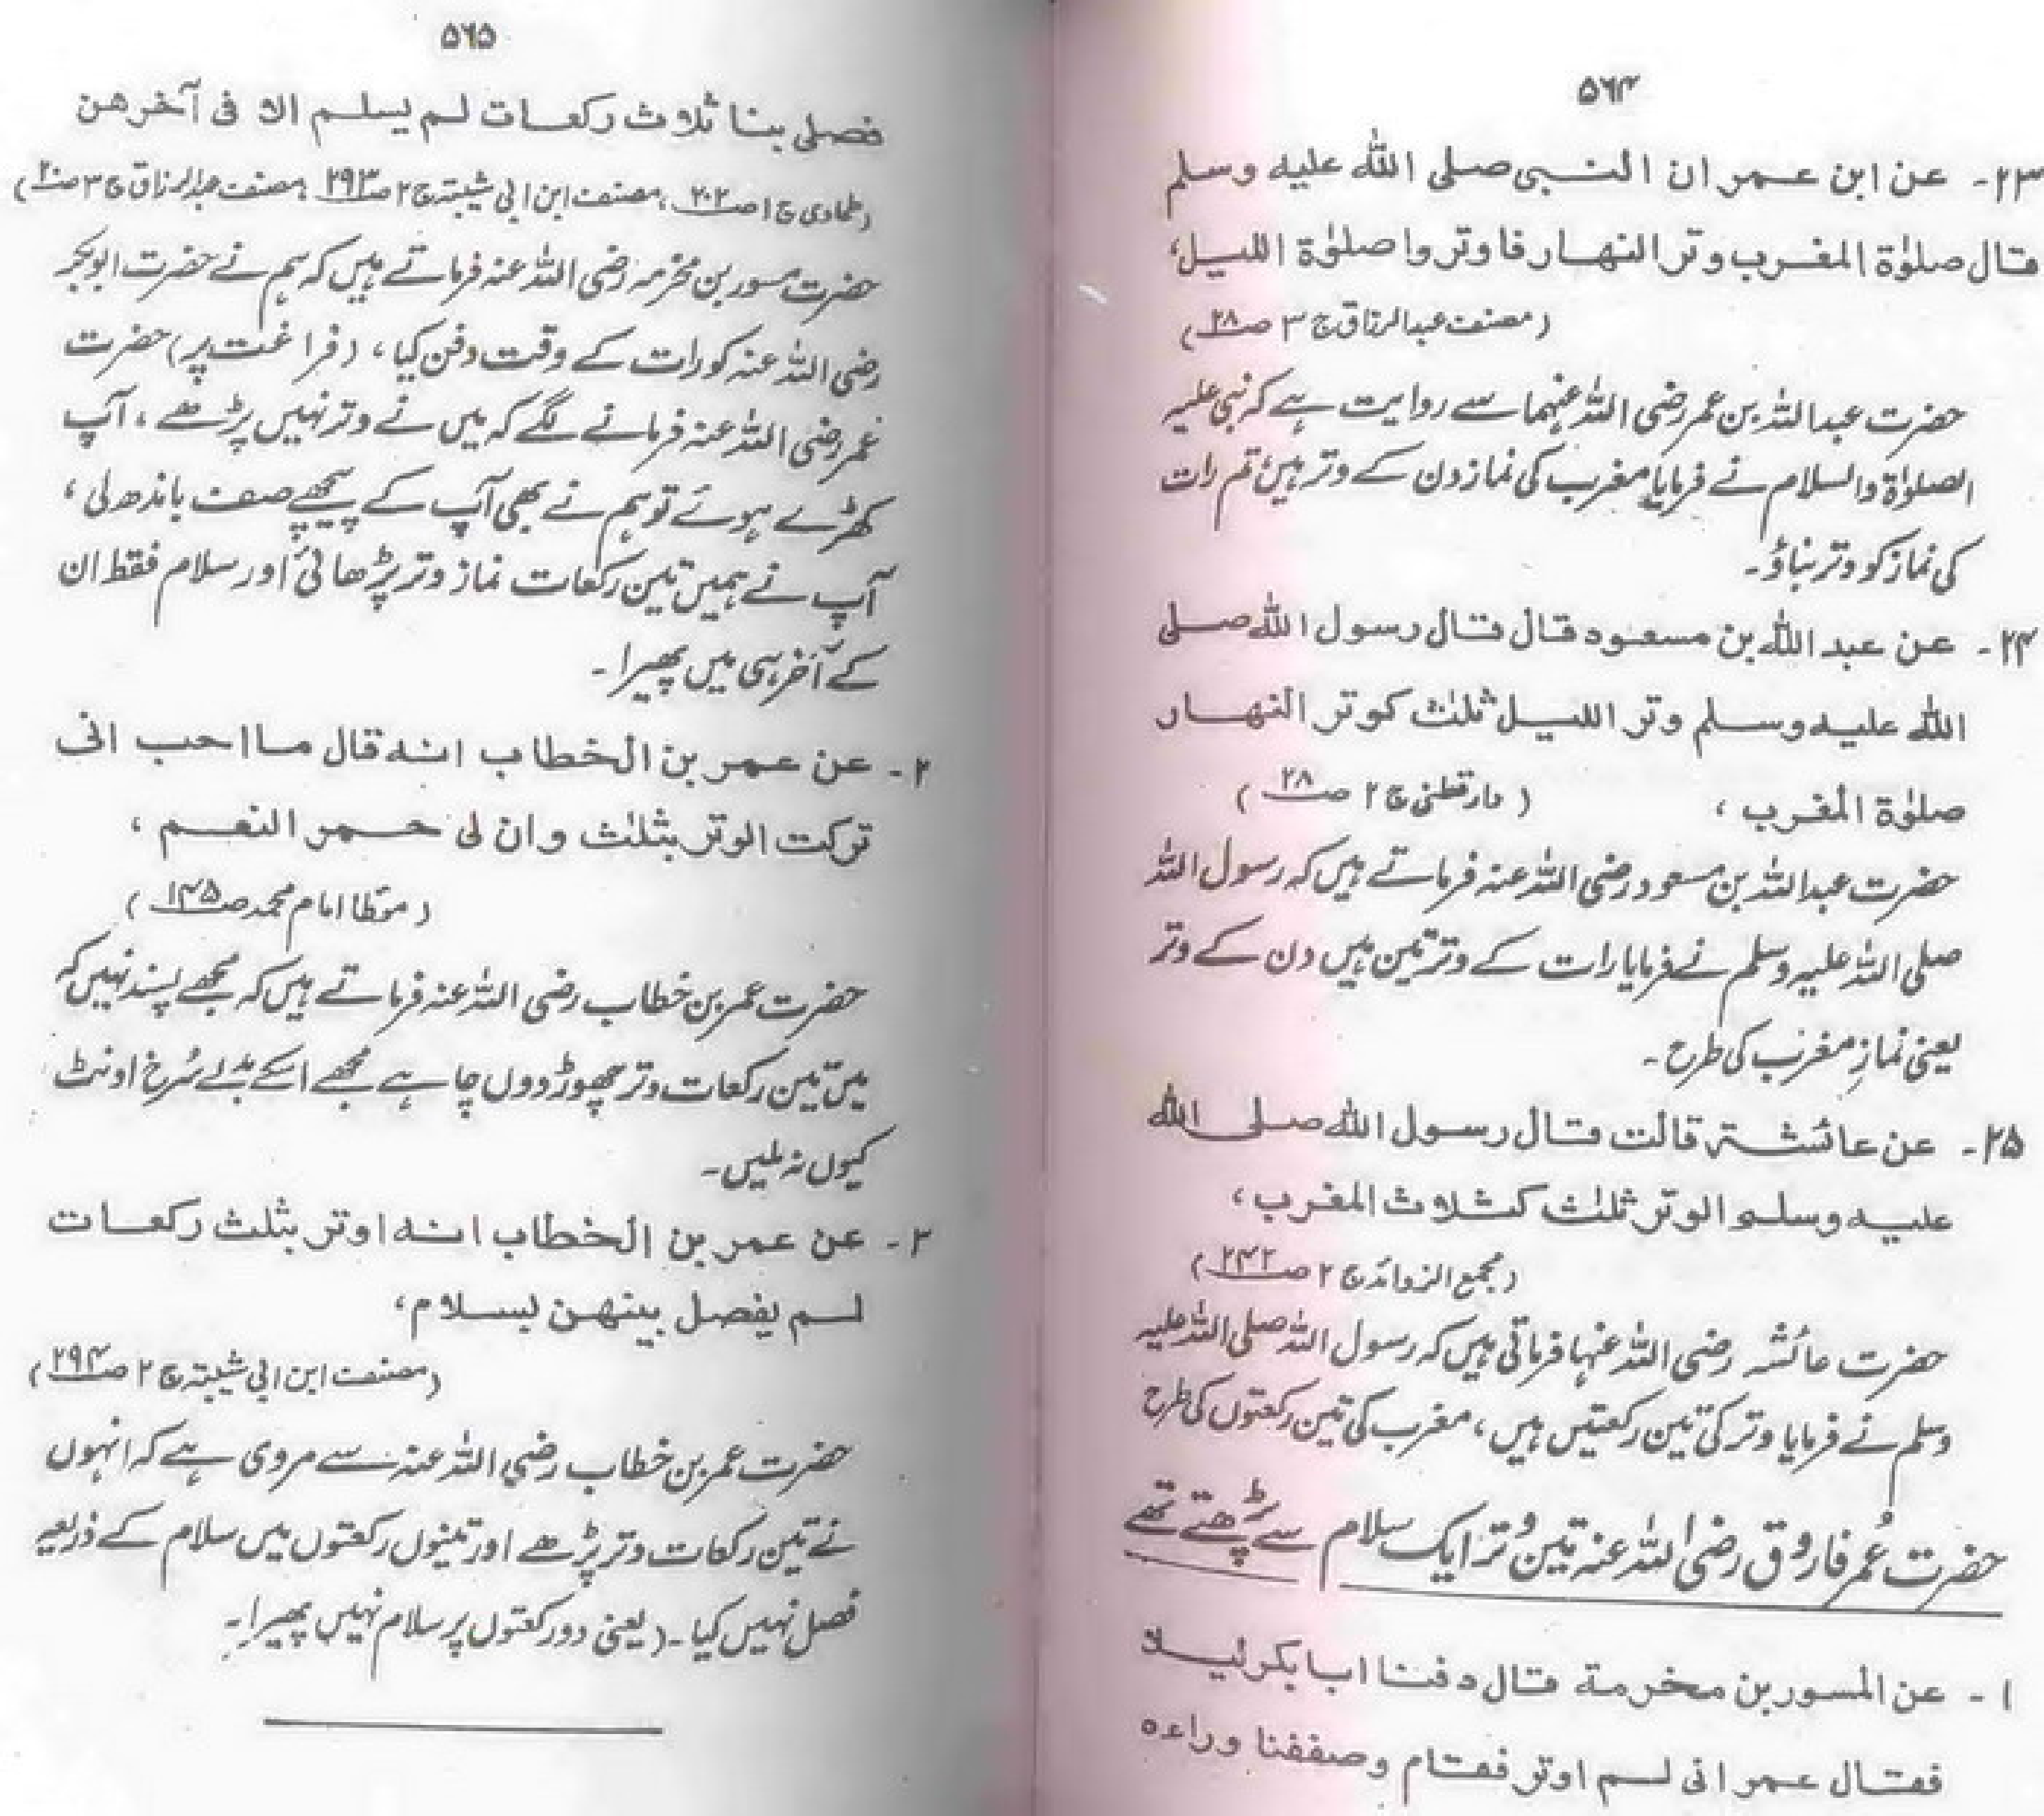 ۵۶۴
۲۳- عن ابن عمر ان النبی صلی الله علیه وسلم
قال صلوٰة المغرب وتر النهار فاوتروا صلوٰة اللیل،
(مصنف عبدالرزاق ج ۳ ص۲۸)
حضرت عبداللہ بن عمر رضی اللہ عنہما سے روایت ہے کہ نبی علیہ
الصلوٰۃ والسلام نے فرمایا مغرب کی نماز دن کے وتر ہیں تم رات
کی نماز کو وتر بناؤ۔
۲۴- عن عبد الله بن مسعود قال قال رسول الله صلی
الله علیه وسلم وتر اللیل ثلٰث کوتر النهار
صلوٰة المغرب، (دارقطنی ج ۲ ص۲۸)
حضرت عبداللہ بن مسعود رضی اللہ عنہ فرماتے ہیں کہ رسول اللہ
صلی اللہ علیہ وسلم نے فرمایا رات کے وتر تین ہیں دن کے وتر
یعنی نمازِ مغرب کی طرح۔
۲۵- عن عائشة قالت قال رسول الله صلی الله
علیه وسلم الوتر ثلٰث کثلاث المغرب،
(مجمع الزوائد ج ۲ ص۲۴۲)
حضرت عائشہ رضی اللہ عنہا فرماتی ہیں کہ رسول اللہ صلی اللہ علیہ
وسلم نے فرمایا وتر کی تین رکعتیں ہیں، مغرب کی تین رکعتوں کی طرح
حضرت عُمر فاروق رضی اللہ عنہ تین وُتر ایک سلام سے پڑھتے تھے
۱- عن المسور بن مخرمة قال دفنا ابا بکر لیلا
فقال عمر انی لم اوتر فقام وصففنا وراءه
۵۶۵
فصلی بنا ثلاث رکعات لم یسلم الا فی آخرهن
(طحاوی ج ۱ ص۲۰۲، مصنف ابن ابی شیبۃ ج ۲ ص۲۹۳، مصنف عبدالرزاق ج ۳ ص۲۰)
حضرت مسور بن مخرمہ رضی اللہ عنہ فرماتے ہیں کہ ہم نے حضرت ابوبکر
رضی اللہ عنہ کو رات کے وقت دفن کیا، (فراغت پر) حضرت
عمر رضی اللہ عنہ فرمانے لگے کہ میں نے وتر نہیں پڑھے، آپ
کھڑے ہوئے تو ہم نے بھی آپ کے پیچھے صف باندھ لی،
آپ نے ہمیں تین رکعات نماز وتر پڑھائی اور سلام فقط ان
کے آخر ہی میں پھیرا۔
۲- عن عمر بن الخطاب انه قال ما احب انی
ترکت الوتر بثلٰث وان لی حمر النعم،
(مؤطا امام محمد ص۱۴۵)
حضرت عمر بن خطاب رضی اللہ عنہ فرماتے ہیں کہ مجھے پسند نہیں کہ
میں تین رکعات وتر چھوڑ دوں چاہے مجھے اسکے بدلے سُرخ اونٹ
کیوں نہ ملیں۔
۳- عن عمر بن الخطاب انه اوتر بثلٰث رکعات
لم یفصل بینهن بسلام،
(مصنف ابن ابی شیبۃ ج ۲ ص۲۹۴)
حضرت عمر بن خطاب رضی اللہ عنہ سے مروی ہے کہ انہوں
نے تین رکعات وتر پڑھے اور تینوں رکعتوں میں سلام کے ذریعہ
فصل نہیں کیا۔ (یعنی دو رکعتوں پر سلام نہیں پھیرا)۔